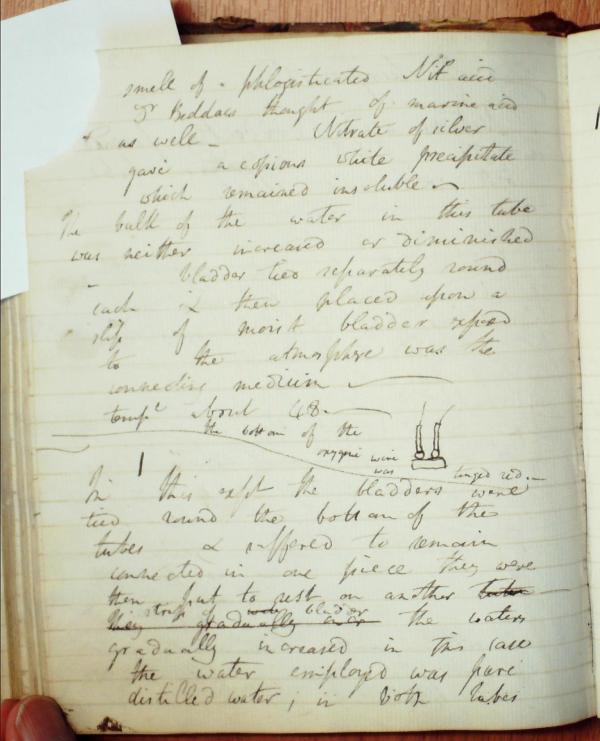 smell of - phlogisticated Nit acid
Dr Beddoes thought of marine acid
as well - Nitrate of silver
gave a copious white precipitate
which remained insoluble -
The bulk of the water in this tube
was neither increased or diminished
- bladder tied separately round
each & then placed upon a
slip of moist bladder exposed
to the atmosphere was the
connecting medium -
tempe about 48 -
the bottom of the
oxygene wire
was tinged red. -
1
In this expt the bladders were
tied round the bottom of the
tubes & suffered to remain
connected in one piece they were
then put to rest on another
strip of bladder
they gradually the waters
gradually increased in this case
the water employed was pure
distilled water; in both tubes